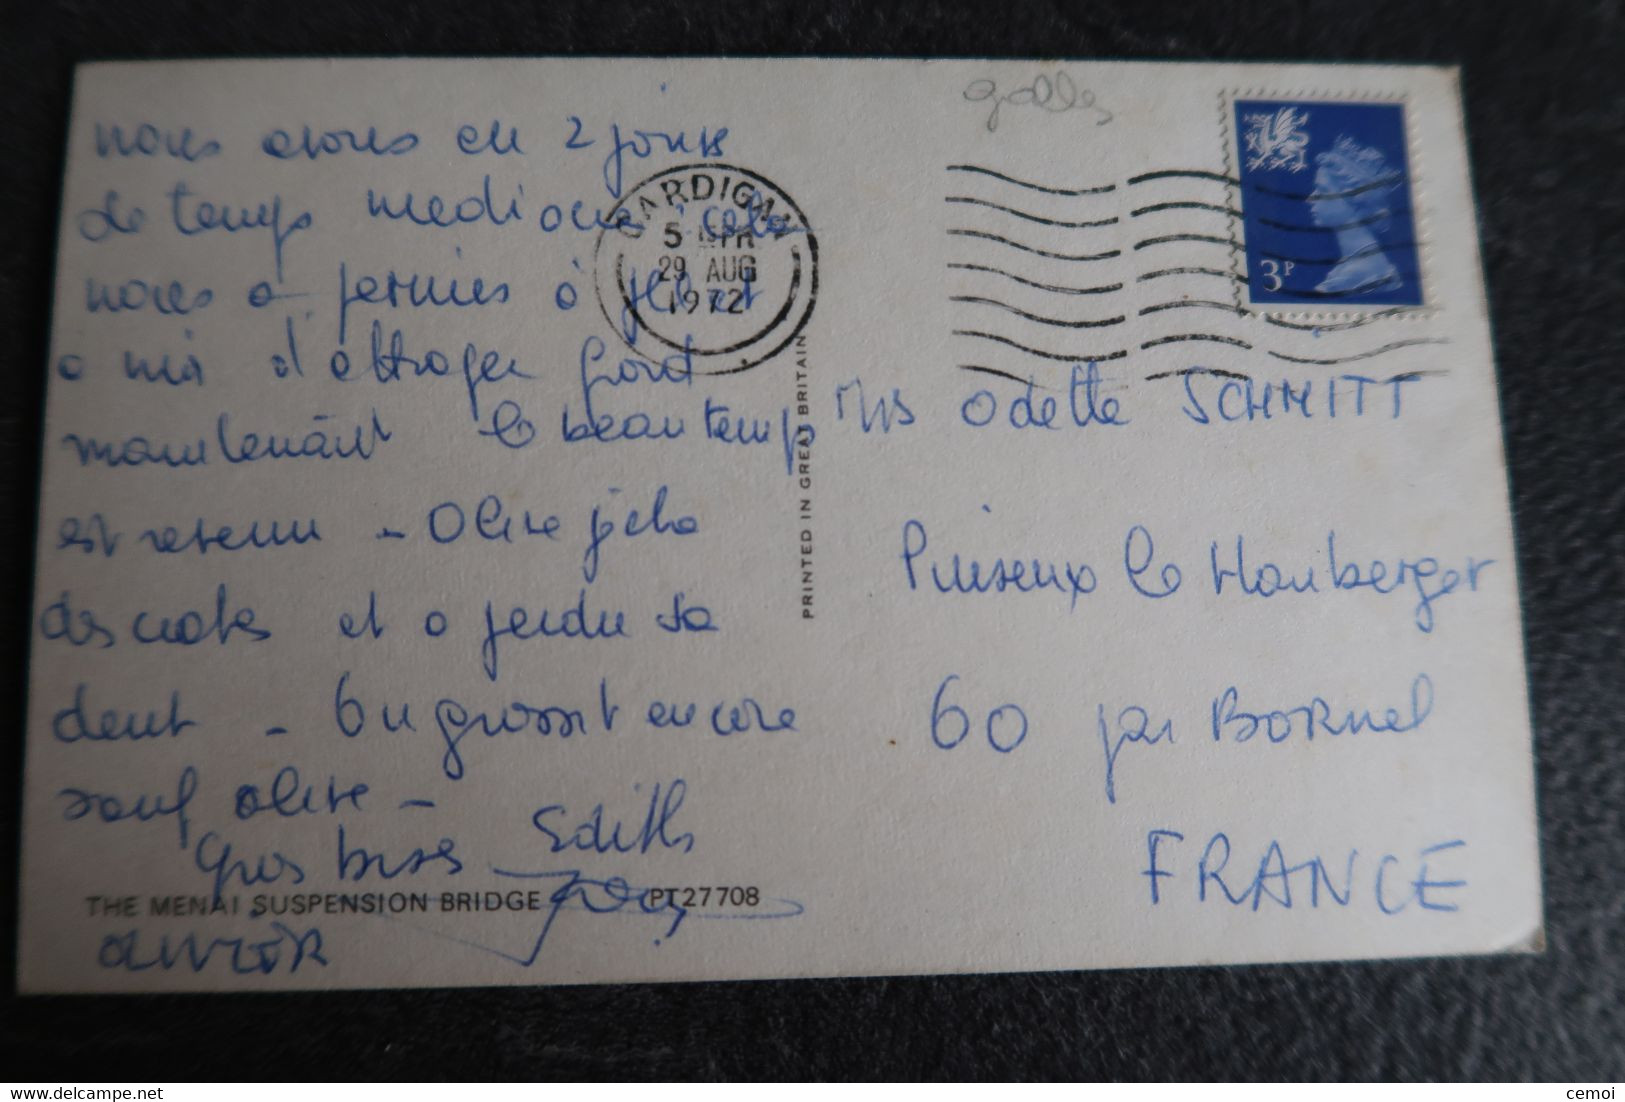 galles
nous avons eu 2 jours
de temps mediocre, cela
nous a permis à
à moi d'attraper froid
maintenant le beau temps
est revenu - Olive pela
des crabes et a perdu sa
dent - On grossit encore
sauf olive -
Gros bises Edith
THE MENAI SUSPENSION BRIDGE PT27708
OLIVIER
CARDIGAN
5 15 PM
29 AUG
1972
3P
PRINTED IN GREAT BRITAIN
Mrs Odette SCHMITT
Puiseux le Hauberger
60 par BORNEL
FRANCE
cemoi